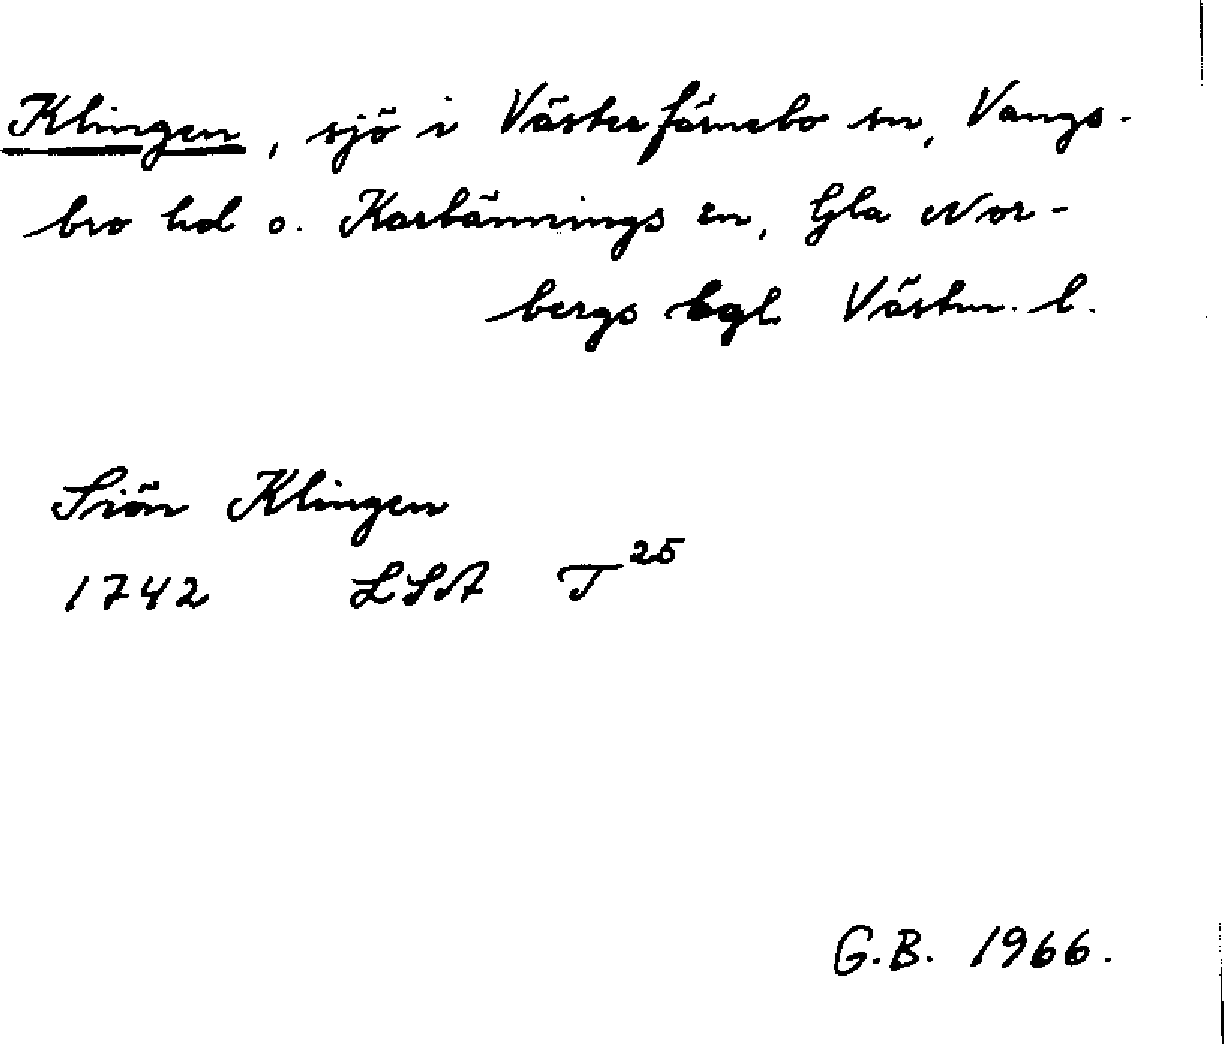 Klingen, sjö i Västerfärnebo sn, Vangs-
bro hd o. Karbännings sn, Gla Nor-
bergs bgl. Västm. l.
Siön Klingen
1742 LSA T 25
G.B. 1966.